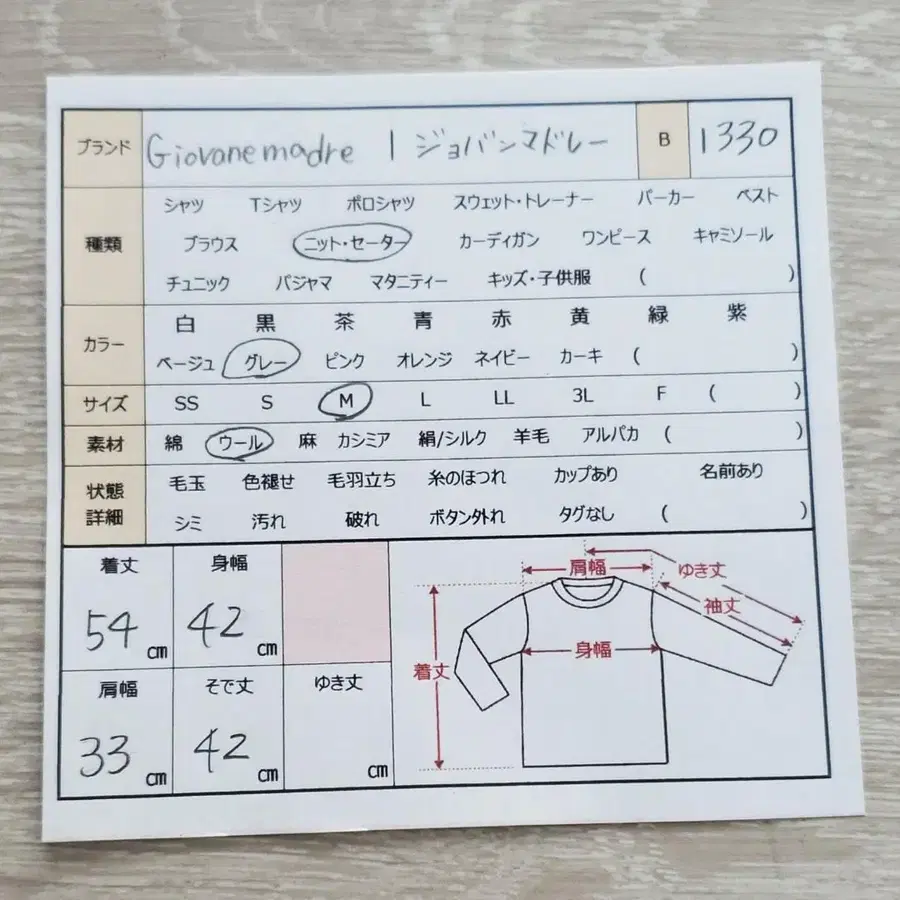 ブランド Giovane madre | ジョバンマドレー B 1330
シャツ Tシャツ ポロシャツ スウェット・トレーナー パーカー ベスト
種類 ブラウス ニット・セーター カーディガン ワンピース キャミソール
チュニック パジャマ マタニティー キッズ・子供服 ( )
白 黒 茶 青 赤 黄 緑 紫
カラー
ベージュ グレー ピンク オレンジ ネイビー カーキ ( )
サイズ SS S M L LL 3L F ( )
素材 綿 ウール 麻 カシミア 絹/シルク 羊毛 アルパカ ( )
状態 毛玉 色褪せ 毛羽立ち 糸のほつれ カップあり 名前あり
詳細 シミ 汚れ 破れ ボタン外れ タグなし ( )
着丈 身幅
54 cm 42 cm
肩幅 そで丈 ゆき丈
33 cm 42 cm cm
肩幅 ゆき丈
袖丈
身幅
着丈